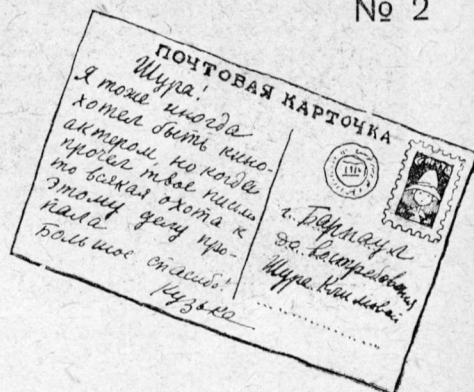 № 2
ПОЧТОВАЯ КАРТОЧКА
Шура!
Я тоже иногда
хотел быть кино-
актером, но когда
прочел твое письмо
то всякая охота к
этому делу про-
пала
Большое спасибо!
Кузька
г. Барнаул
до востребования
Шура Климовой